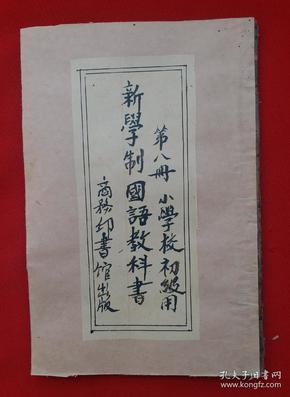 第八冊 小學校初級用
新學制國語教科書
商務印書館出版
孔夫子旧书网